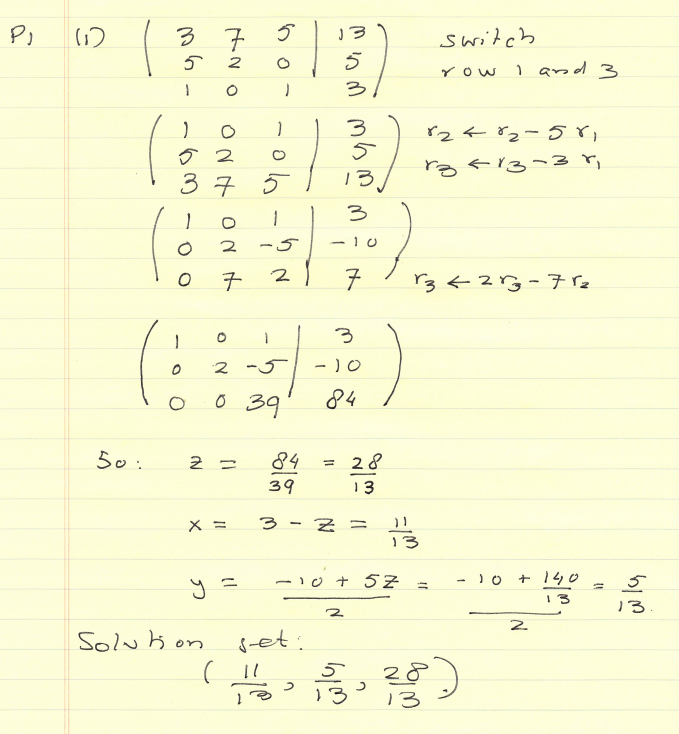 P1 (1) ( 3 7 5 | 13 ) switch
5 2 0 | 5 row 1 and 3
1 0 1 | 3
( 1 0 1 | 3 ) r2 ← r2 - 5 r1
5 2 0 | 5 r3 ← r3 - 3 r1
3 7 5 | 13
( 1 0 1 | 3 )
0 2 -5 | -10
0 7 2 | 7 r3 ← 2 r3 - 7 r2
( 1 0 1 | 3 )
0 2 -5 | -10
0 0 39 | 84
So: z = 84/39 = 28/13
x = 3 - z = 11/13
y = (-10 + 5z)/2 = (-10 + 140/13)/2 = 5/13.
Solution set:
( 11/13, 5/13, 28/13 )